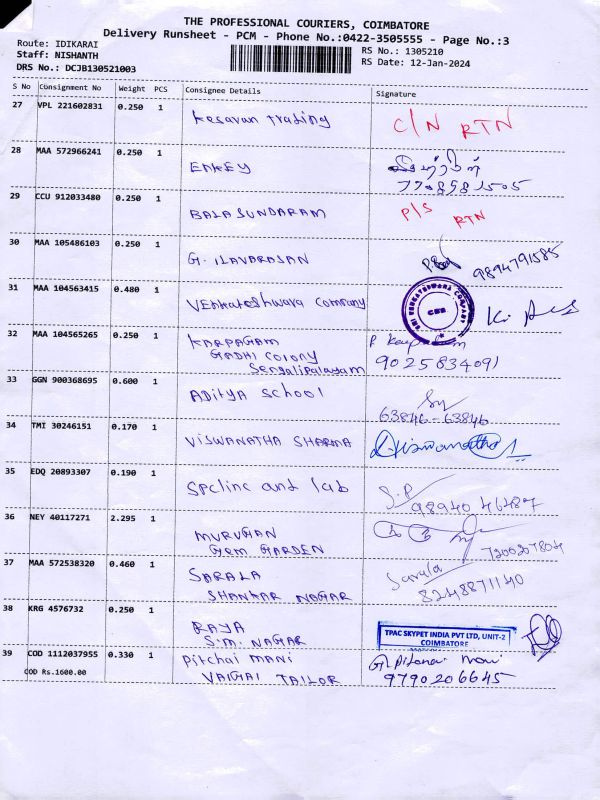 THE PROFESSIONAL COURIERS, COIMBATORE
Delivery Runsheet - PCM - Phone No.:0422-3505555 - Page No.:3
Route: IDIKARAI
Staff: NISHANTH
DRS No.: DCJB130521003
RS No.: 1305210
RS Date: 12-Jan-2024
S No Consignment No Weight PCS Consignee Details Signature
27 VPL 221602831 0.250 1 Kesavan Trading C/N RTN
28 MAA 572966241 0.250 1 ENKEY
7708581505
29 CCU 912033480 0.250 1 BALASUNDARAM P/S RTN
30 MAA 105486103 0.250 1 G. ILAVARASAN 9894791585
31 MAA 104563415 0.480 1 VENkateshwara Company
SRI VENKATESWARA COMPANY
CBE
32 MAA 104565265 0.250 1 KARPAGAM
GADHI COLONY
Sengalipalayam
9025834091
33 GGN 900368695 0.600 1 ADITYA School
63846-63846
34 TMI 30246151 0.170 1 VISWANATHA SHARMA
35 EDQ 20893307 0.190 1 Spclinc and lab S.P
98940 46487
36 NEY 40117271 2.295 1 MURUGAN
Gem GARDEN
7200207804
37 MAA 572538320 0.460 1 SARALA Sarala
SHANKAR NAGAR 8248871140
38 KRG 4576732 0.250 1 RAJA
S.M. NAGAR
TPAC SKYPET INDIA PVT LTD, UNIT-2
COIMBATORE
39 COD 1112037955 0.330 1 Pitchai Mani
COD Rs.1600.00 VAIGAI TAILOR 9790206645